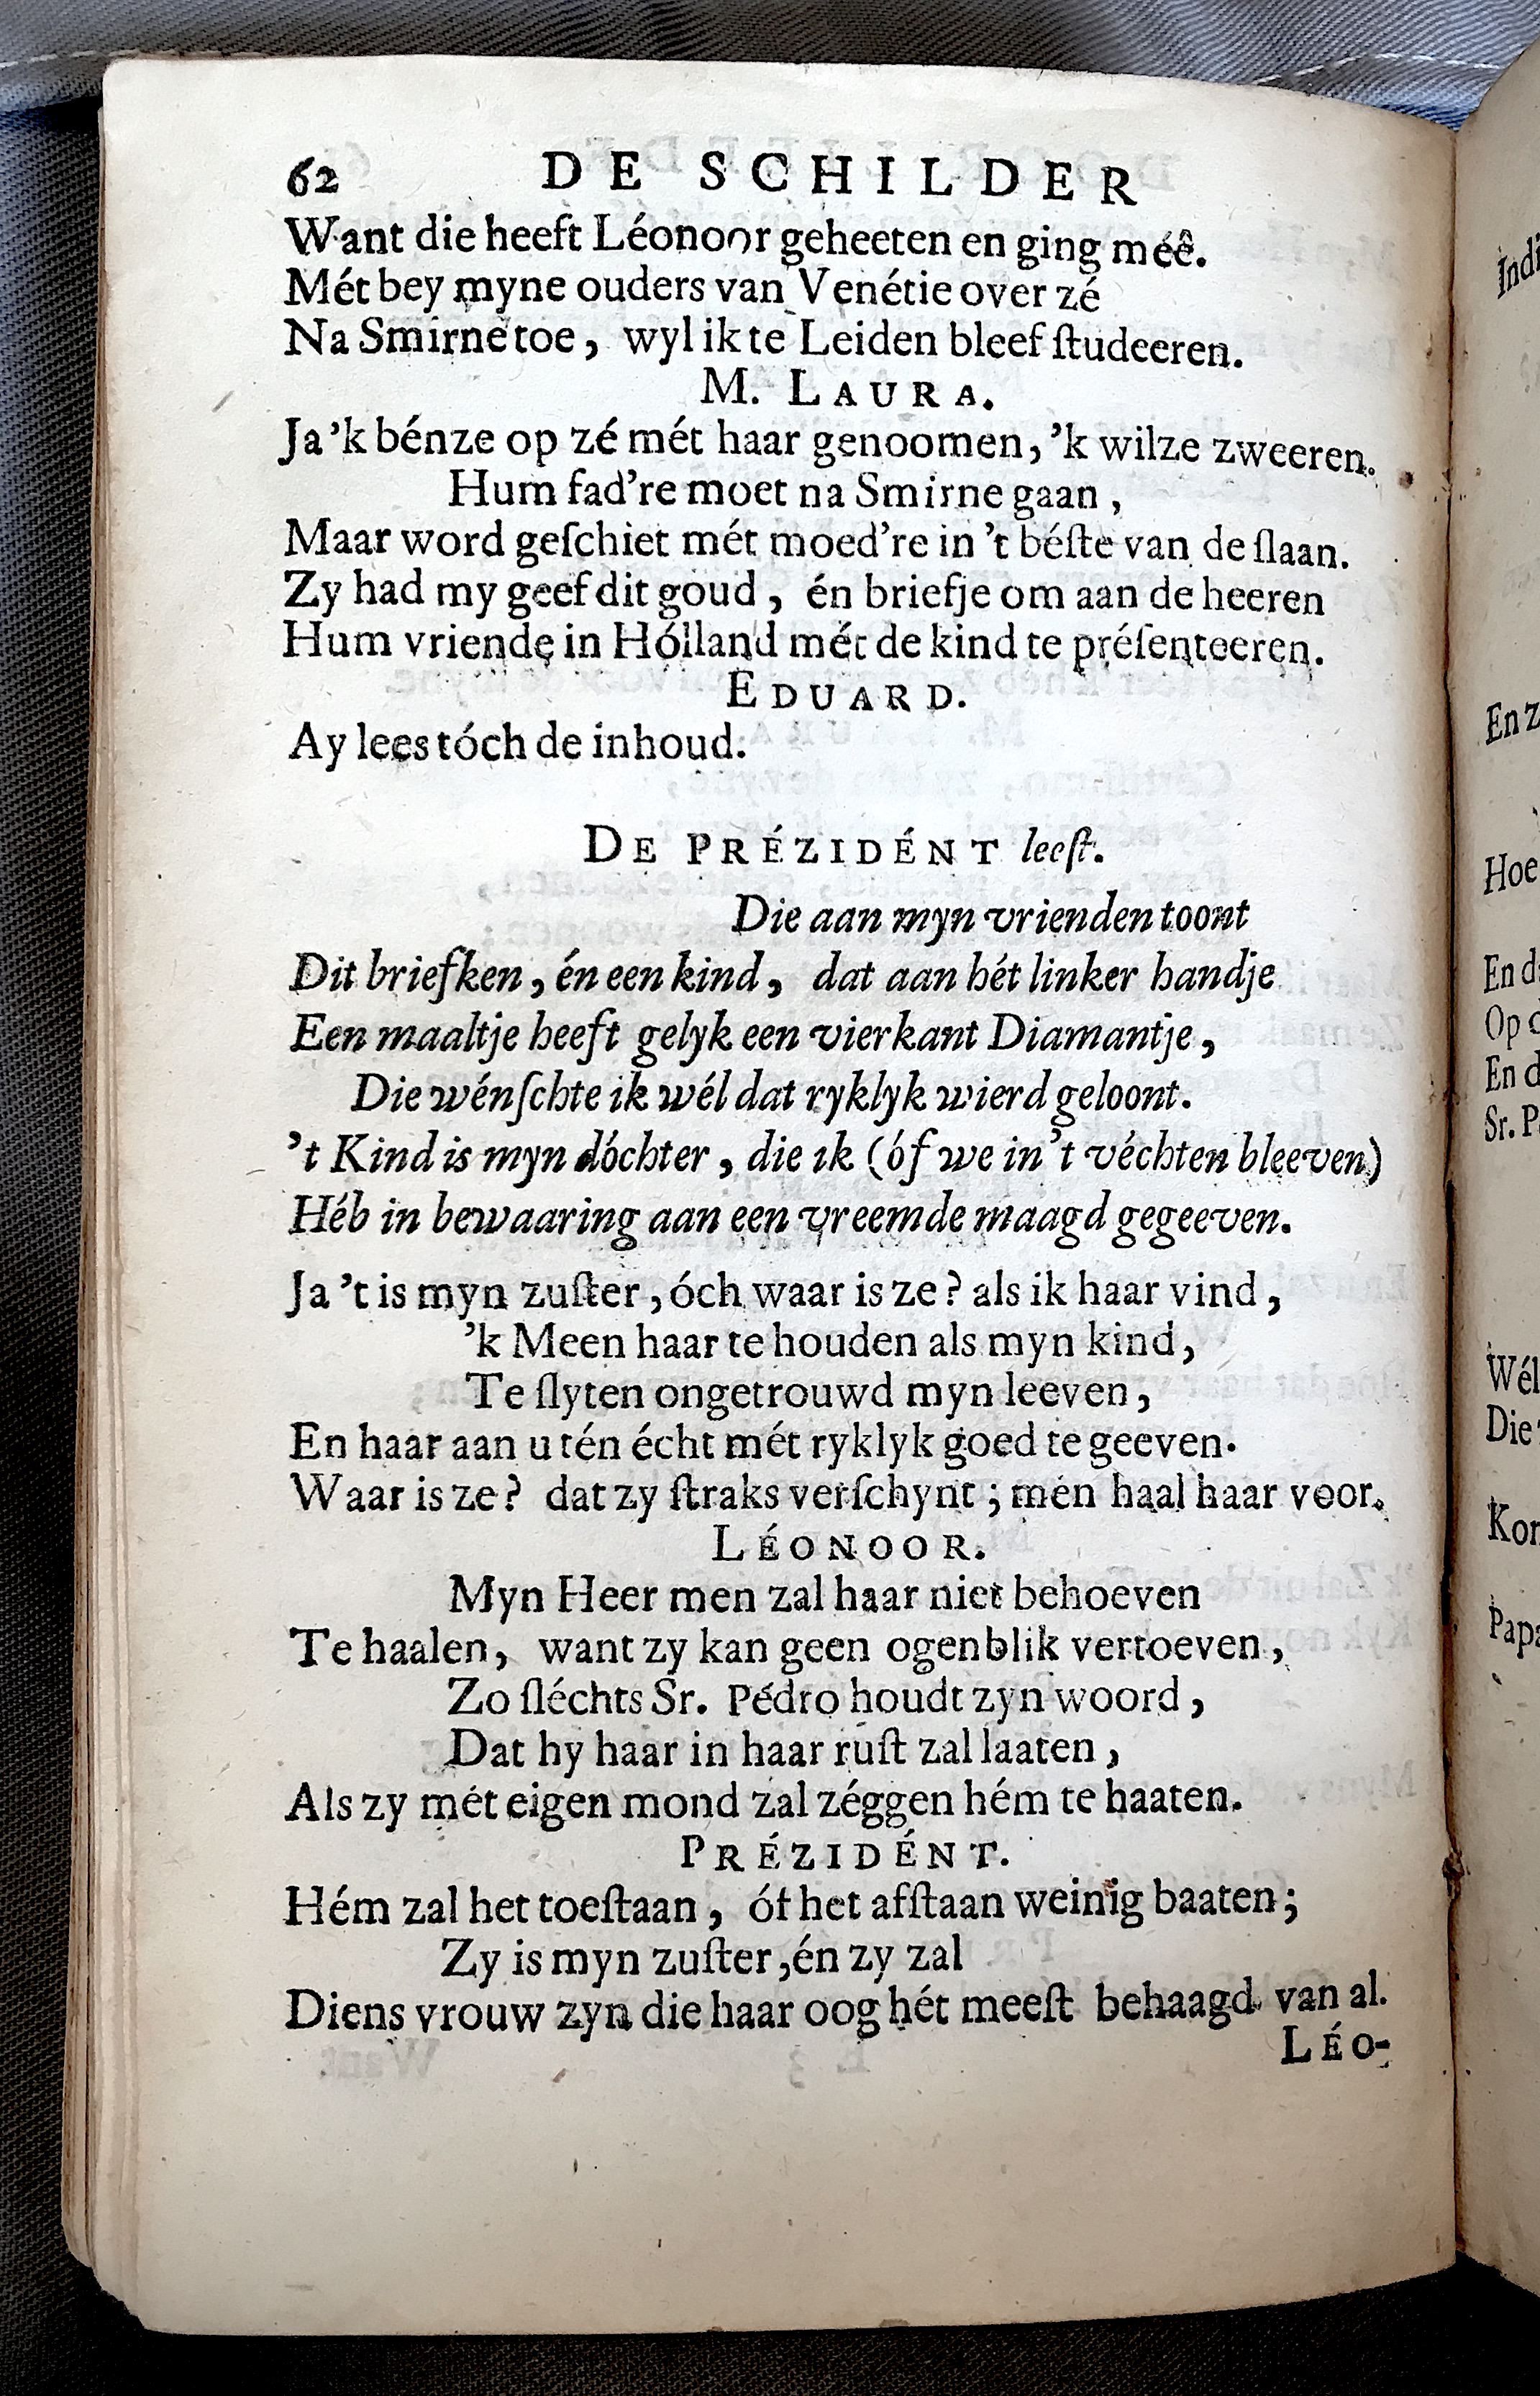 62 DE SCHILDER
Want die heeft Léonoor geheeten en ging méê.
Mét bey myne ouders van Venétie over zé
Na Smirne toe, wyl ik te Leiden bleef ſtudeeren.
M. LAURA.
Ja 'k bénze op zé mét haar genoomen, 'k wilze zweeren.
Hum fad're moet na Smirne gaan,
Maar word geſchiet mét moed're in 't béſte van de ſlaan.
Zy had my geef dit goud, én briefje om aan de heeren
Hum vriende in Hólland mét de kind te préſenteeren.
EDUARD.
Ay lees tóch de inhoud.
DE PRÉZIDÉNT leeſt.
Die aan myn vrienden toont
Dit briefken, én een kind, dat aan hét linker handje
Een maaltje heeft gelyk een vierkant Diamantje,
Die wénſchte ik wél dat ryklyk wierd geloont.
't Kind is myn dóchter, die ik (óf we in 't véchten bleeven)
Héb in bewaaring aan een vreemde maagd gegeeven.
Ja 't is myn zuſter, óch waar is ze? als ik haar vind,
'k Meen haar te houden als myn kind,
Te ſlyten ongetrouwd myn leeven,
En haar aan u tén écht mét ryklyk goed te geeven.
Waar is ze? dat zy ſtraks verſchynt; mén haal haar voor.
LÉONOOR.
Myn Heer men zal haar niet behoeven
Te haalen, want zy kan geen ogenblik vertoeven,
Zo ſléchts Sr. Pédro houdt zyn woord,
Dat hy haar in haar ruſt zal laaten,
Als zy mét eigen mond zal zéggen hém te haaten.
PRÉZIDÉNT.
Hém zal het toeſtaan, óf het afſtaan weinig baaten;
Zy is myn zuſter, én zy zal
Diens vrouw zyn die haar oog hét meeſt behaagd van al.
LÉO-
Indi
En z
Hoe
En d
Op
En d
Sr. P
Wél
Die
Kor
Papa